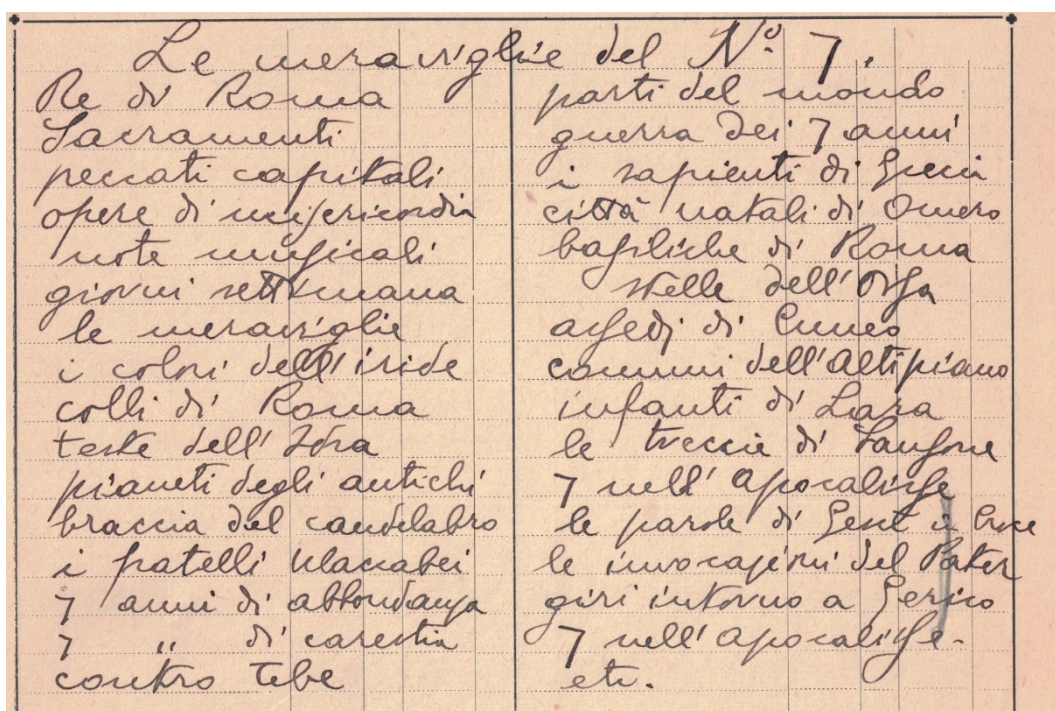 Le meraviglie del Nº 7.
Re di Roma
Sacramenti
peccati capitali
opere di misericordia
note musicali
giorni settimana
le meraviglie
i colori dell'iride
colli di Roma
teste dell'Idra
pianeti degli antichi
braccia del candelabro
i fratelli Maccabei
7 anni di abbondanza
7 " di carestia
contro Tebe
parti del mondo
guerra dei 7 anni
i sapienti di Grecia
città natali di Omero
basiliche di Roma
stelle dell'Orsa
assedj di Cuneo
comuni dell'Altipiano
infanti di Lara
le treccie di Sansone
7 nell'Apocalisse
le parole di Gesù in Croce
le invocazioni del Pater
giri intorno a Gerico
7 nell'Apocalisse.
etc.